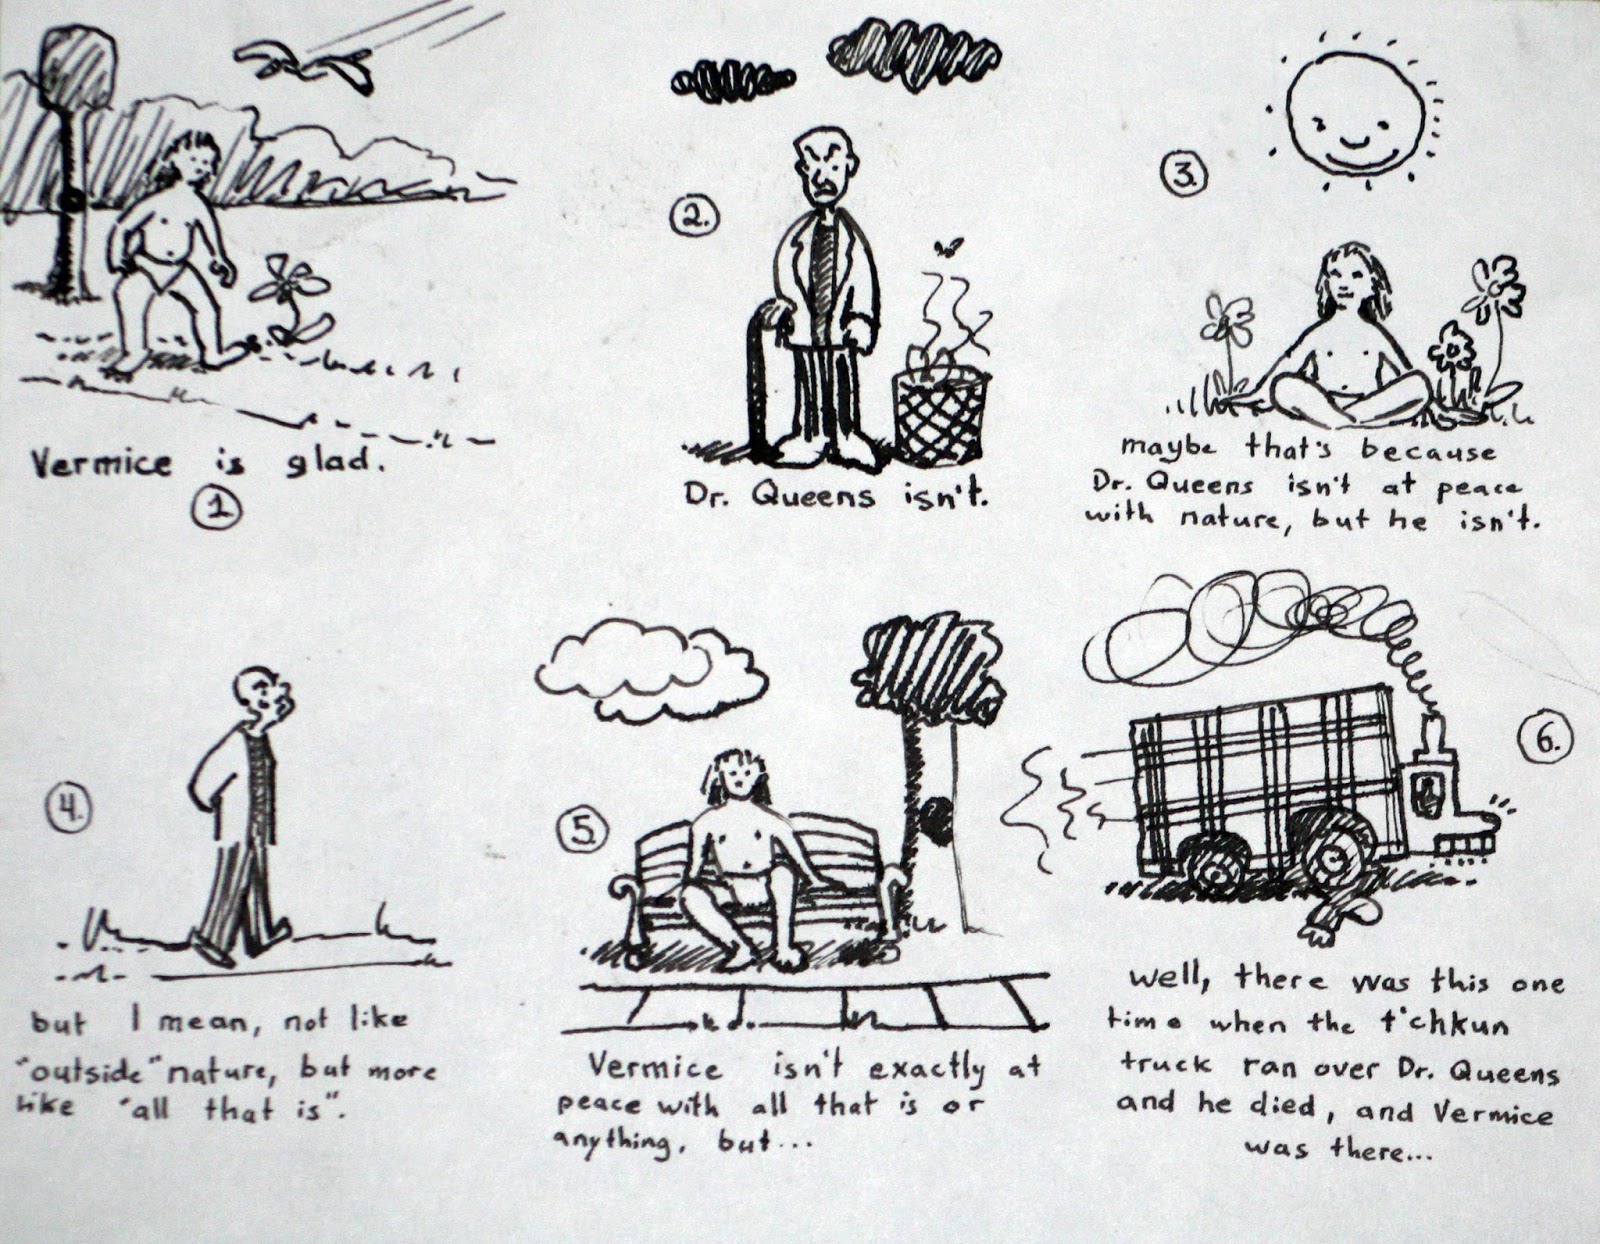 Vermice is glad.
1
2.
Dr. Queens isn't.
3.
maybe that's because
Dr. Queens isn't at peace
with nature, but he isn't.
4.
but I mean, not like
"outside" nature, but more
like "all that is".
5.
Vermice isn't exactly at
peace with all that is or
anything, but...
6.
well, there was this one
time when the t'chkun
truck ran over Dr. Queens
and he died, and Vermice
was there...